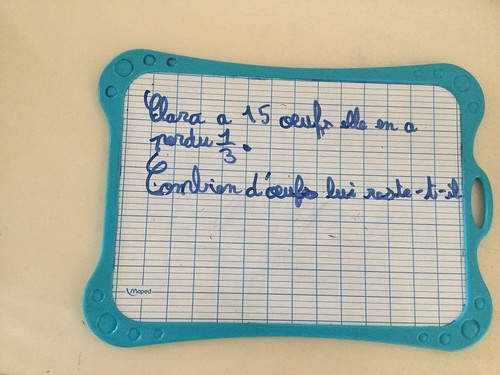 Clara a 15 oeufs elle en a
perdu 1/3.
Combien d'oeufs lui reste-t-il
Maped